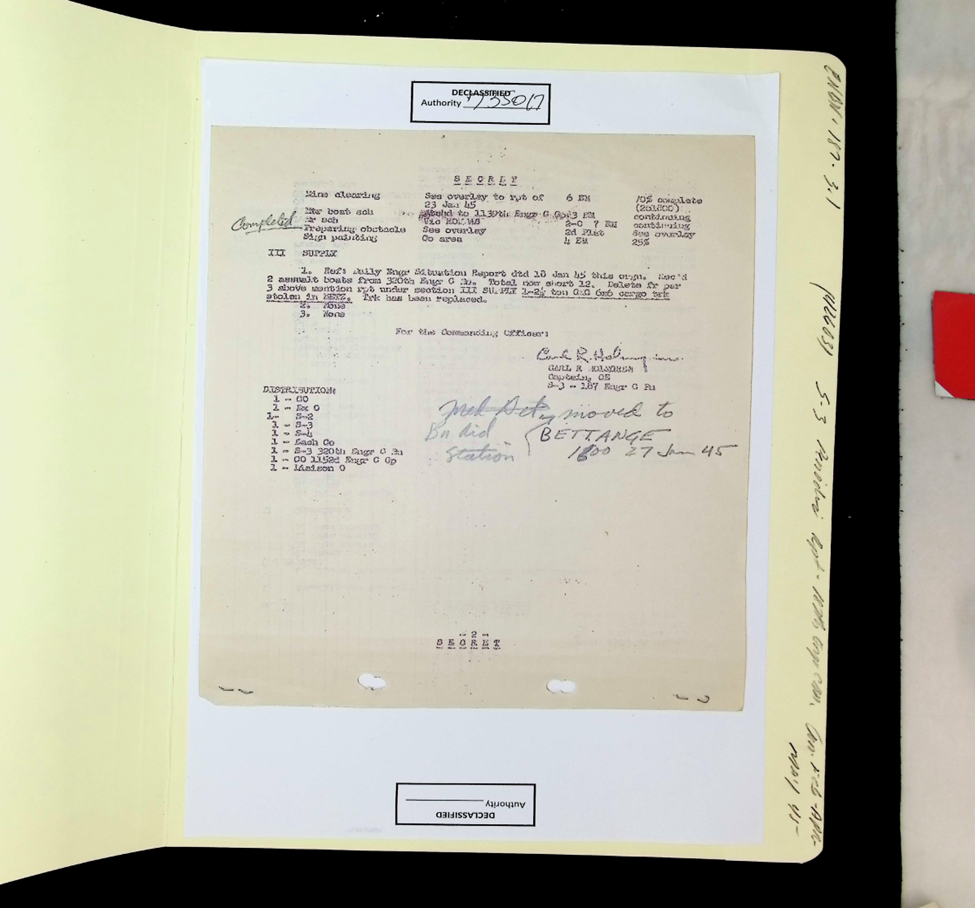 DECLASSIFIED
Authority 735017
SECRET
Mine clearing See overlay to rpt of 6 EM 70% complete
23 Jan 45 (201800)
sch Attchd to 1139th Engr C Gp 3 EM continuing
sch Vic 2-O 7 EM continuing
Completed Preparing obstacle See overlay 2d Plat See overlay
Sign painting Co area 4 EM 25%
III SUPPLY
1. Ref: Daily Engr Situation Report dtd 18 Jan 45 this orgn. Rec'd
2 assault boats from 320th Engr C Bn. Total now short 12. Delete fr par
3 above mention rpt under section III SUPPLY 1-2½ ton 6x6 cargo trk
stolen in METZ. Trk has been replaced.
2. None
3. None
For the Commanding Officer:
Carl R. Holmgren
CARL R HOLMGREN
Captain, CE
S-3 - 187 Engr C Bn
DISTRIBUTION:
1 - CO
1 - Ex O
1- S-2
1 - S-3
1 - S-4
1 - Each Co
1 - S-3 320th Engr C Bn
1 - CO 1152d Engr C Gp
1 - Liaison O
Med Det, moved to
Bn Aid BETTANGE
Station 1800 27 Jan 45
- 2 -
SECRET
DECLASSIFIED
Authority
ENBN-187-3.1
S-3 Periodic Rpt - 187th Engr Com. Bn. Feb-Apr-
May 45-